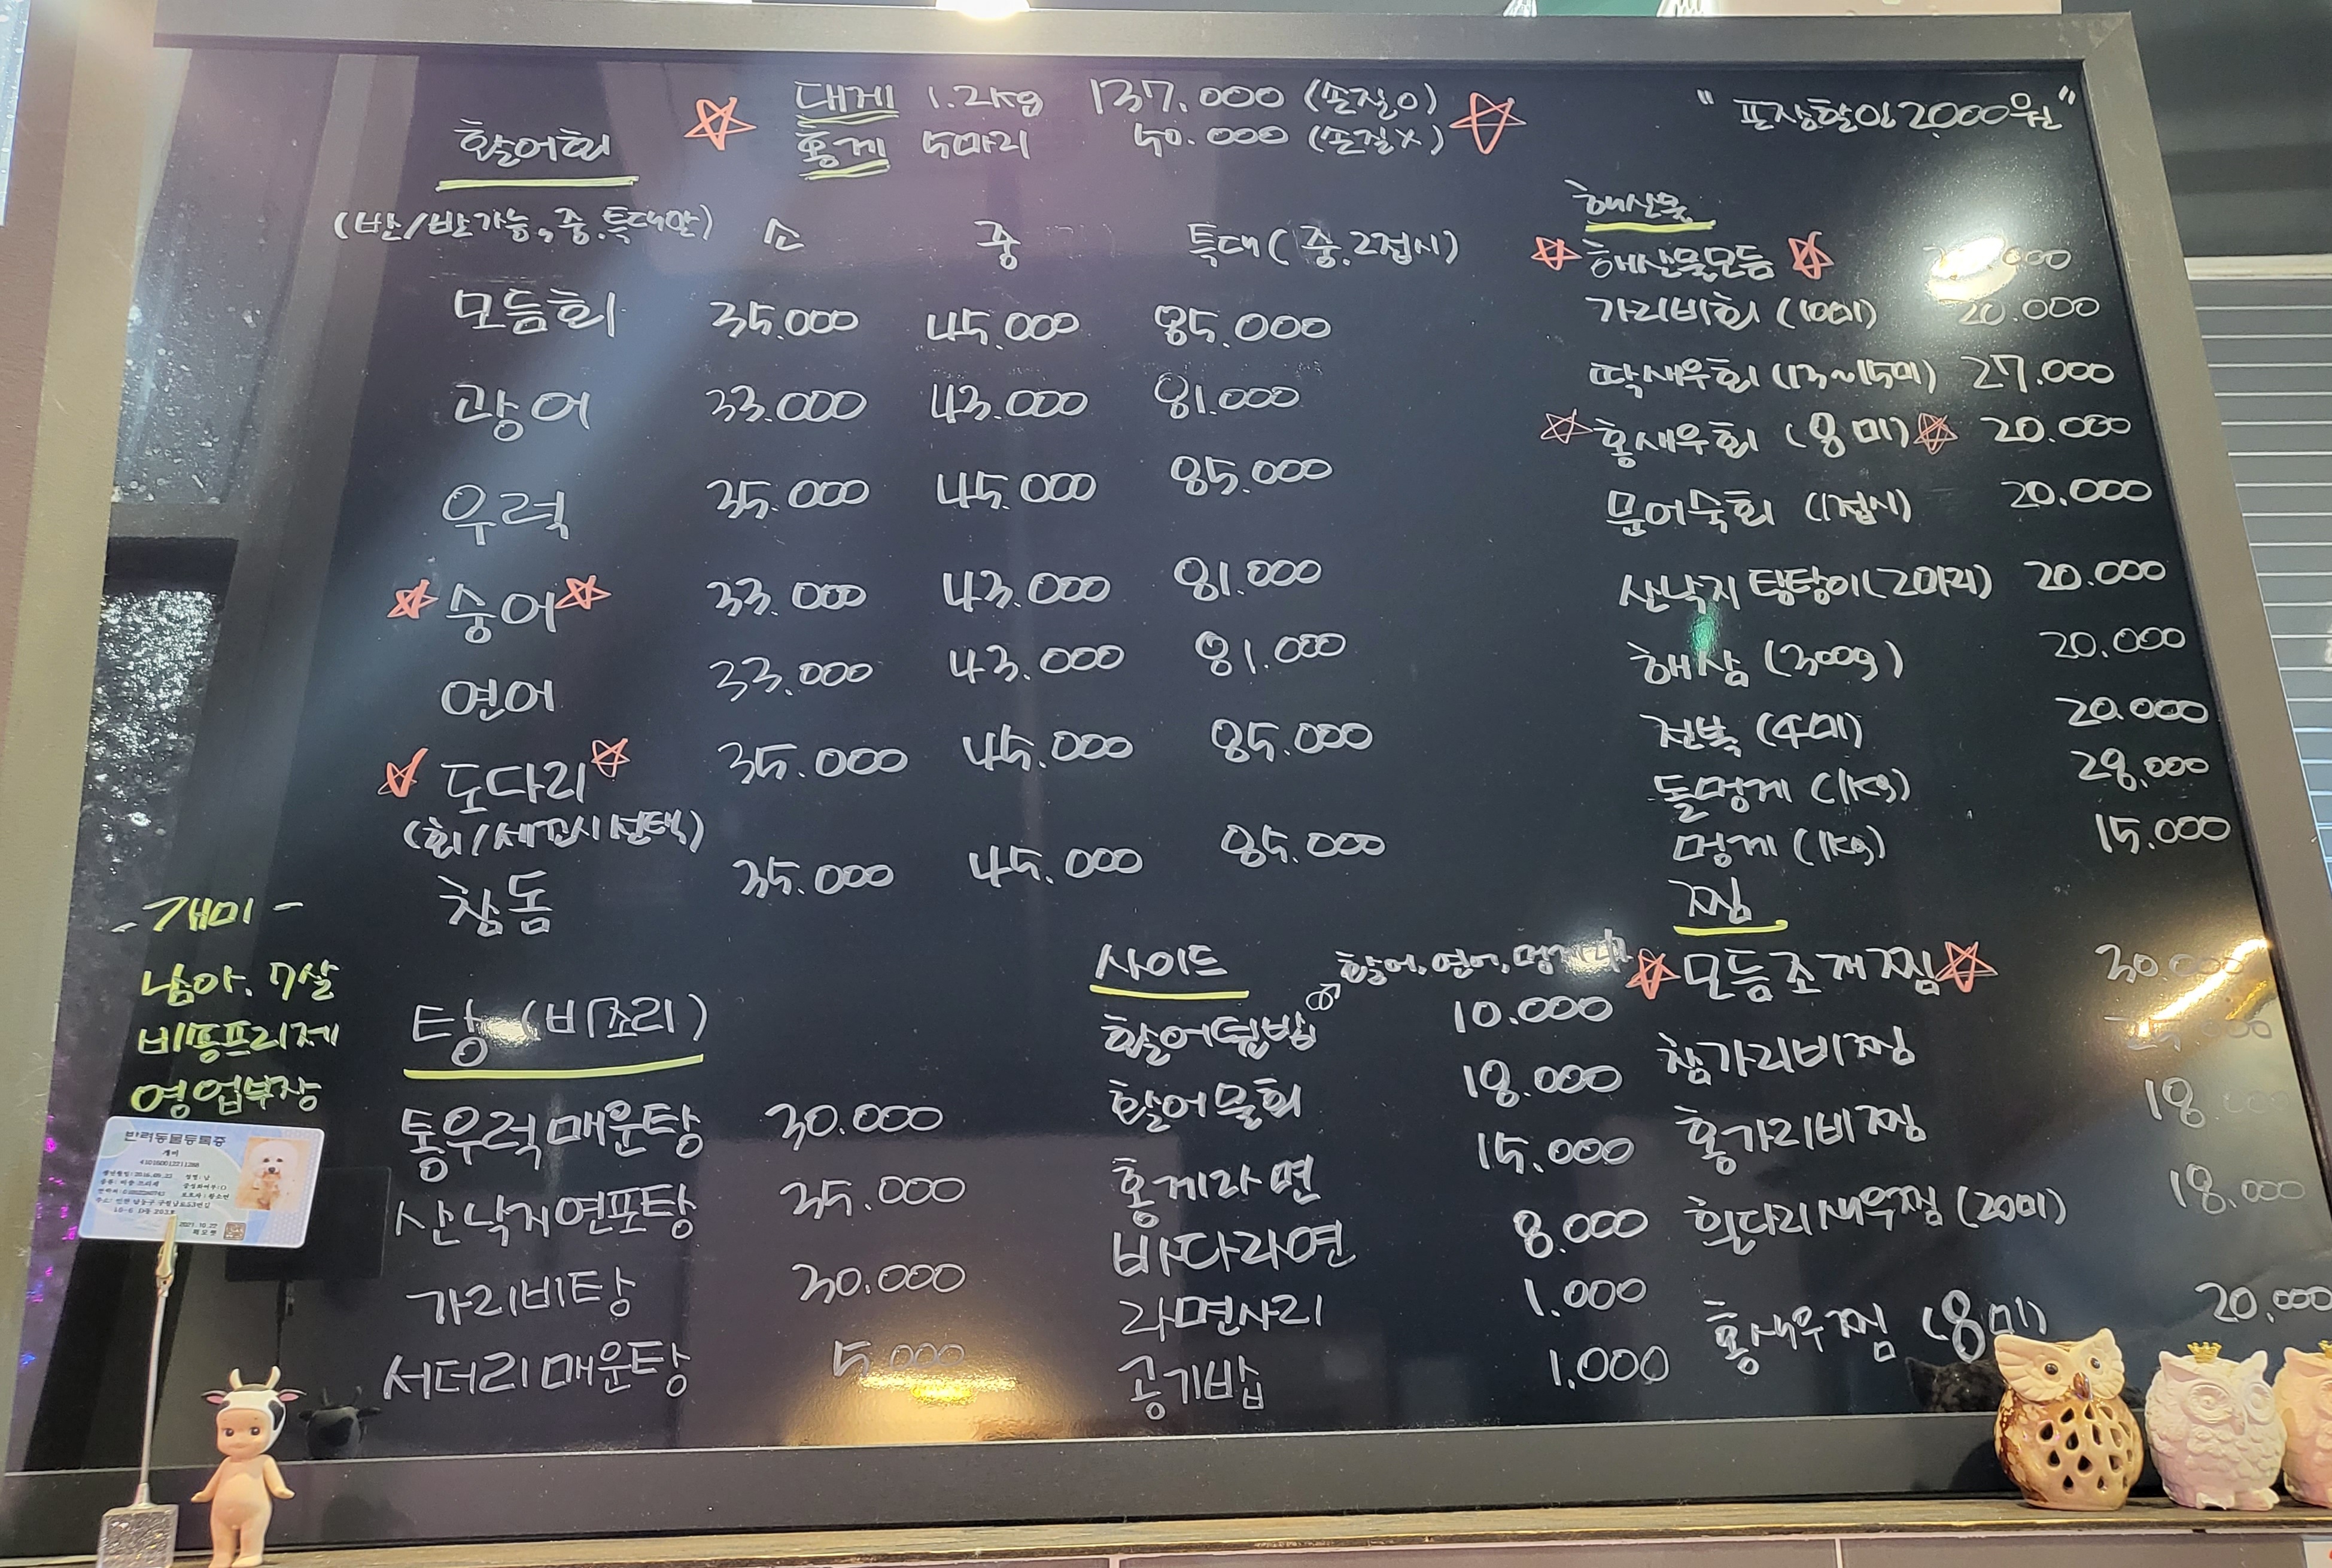 대게 1.2kg 137.000 (손질o)
홍게 5마리 50.000 (손질x)
"포장할인 2,000원"
활어회
(반/반가능, 중.특대만) 소 중 특대 (중.2접시)
모듬회 35.000 45.000 85.000
광어 33.000 43.000 81.000
우럭 35.000 45.000 85.000
숭어 33.000 43.000 81.000
연어 33.000 43.000 81.000
도다리 35.000 45.000 85.000
(회/세꼬시 선택)
참돔 35.000 45.000 85.000
해산물
해산물모듬
가리비회 (10미) 20.000
딱새우회 (13~15미) 27.000
홍새우회 (8미) 20.000
문어숙회 (1접시) 20.000
산낙지 탕탕이 (2마리) 20.000
해삼 (300g) 20.000
전복 (4미) 20.000
돌멍게 (1kg) 28.000
멍게 (1kg) 15.000
찜
모듬조개찜
참가리비찜
홍가리비찜 18.000
흰다리새우찜 (20미) 18.000
홍새우찜 (8미) 20.000
탕 (비조리)
통우럭매운탕 30.000
산낙지연포탕 35.000
가리비탕 30.000
서더리매운탕 5.000
사이드
활어, 연어, 멍게
활어덮밥 10.000
활어물회 18.000
홍게라면 15.000
바다라면 8.000
라면사리 1.000
공기밥 1.000
- 개미 -
남아. 7살
비숑프리제
영업부장
반려동물등록증
개미
2021.10.22